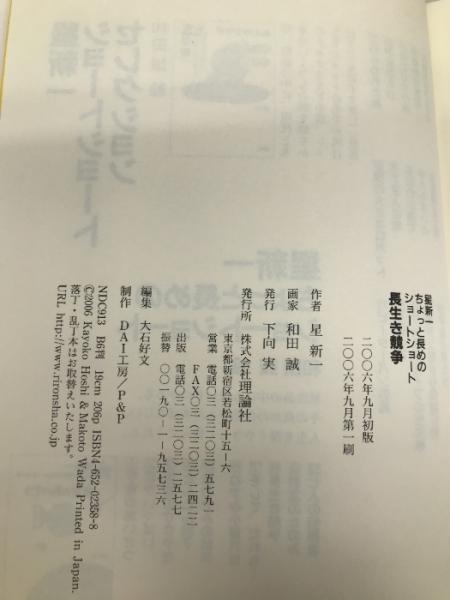 星新一
ちょっと長めの
ショートショート
長生き競争
二〇〇六年九月初版
二〇〇六年九月第一刷
作者 星 新一
画家 和田 誠
発行 下向 実
発行所 株式会社理論社
東京都新宿区若松町十五-六
営業 電話〇三(三二〇三)五七九一
FAX〇三(三二〇三)二四二二
出版 電話〇三(三二〇三)二五七七
振替 〇〇一九〇-一-九五七三六
編集 大石好文
制作 DAI工房/P&P
NDC913 B6判 19cm 206p ISBN4-652-02358-8
©2006 Kayoko Hoshi & Makoto Wada Printed in Japan.
落丁・乱丁本はお取替えいたします。
URL http://www.rironsha.co.jp